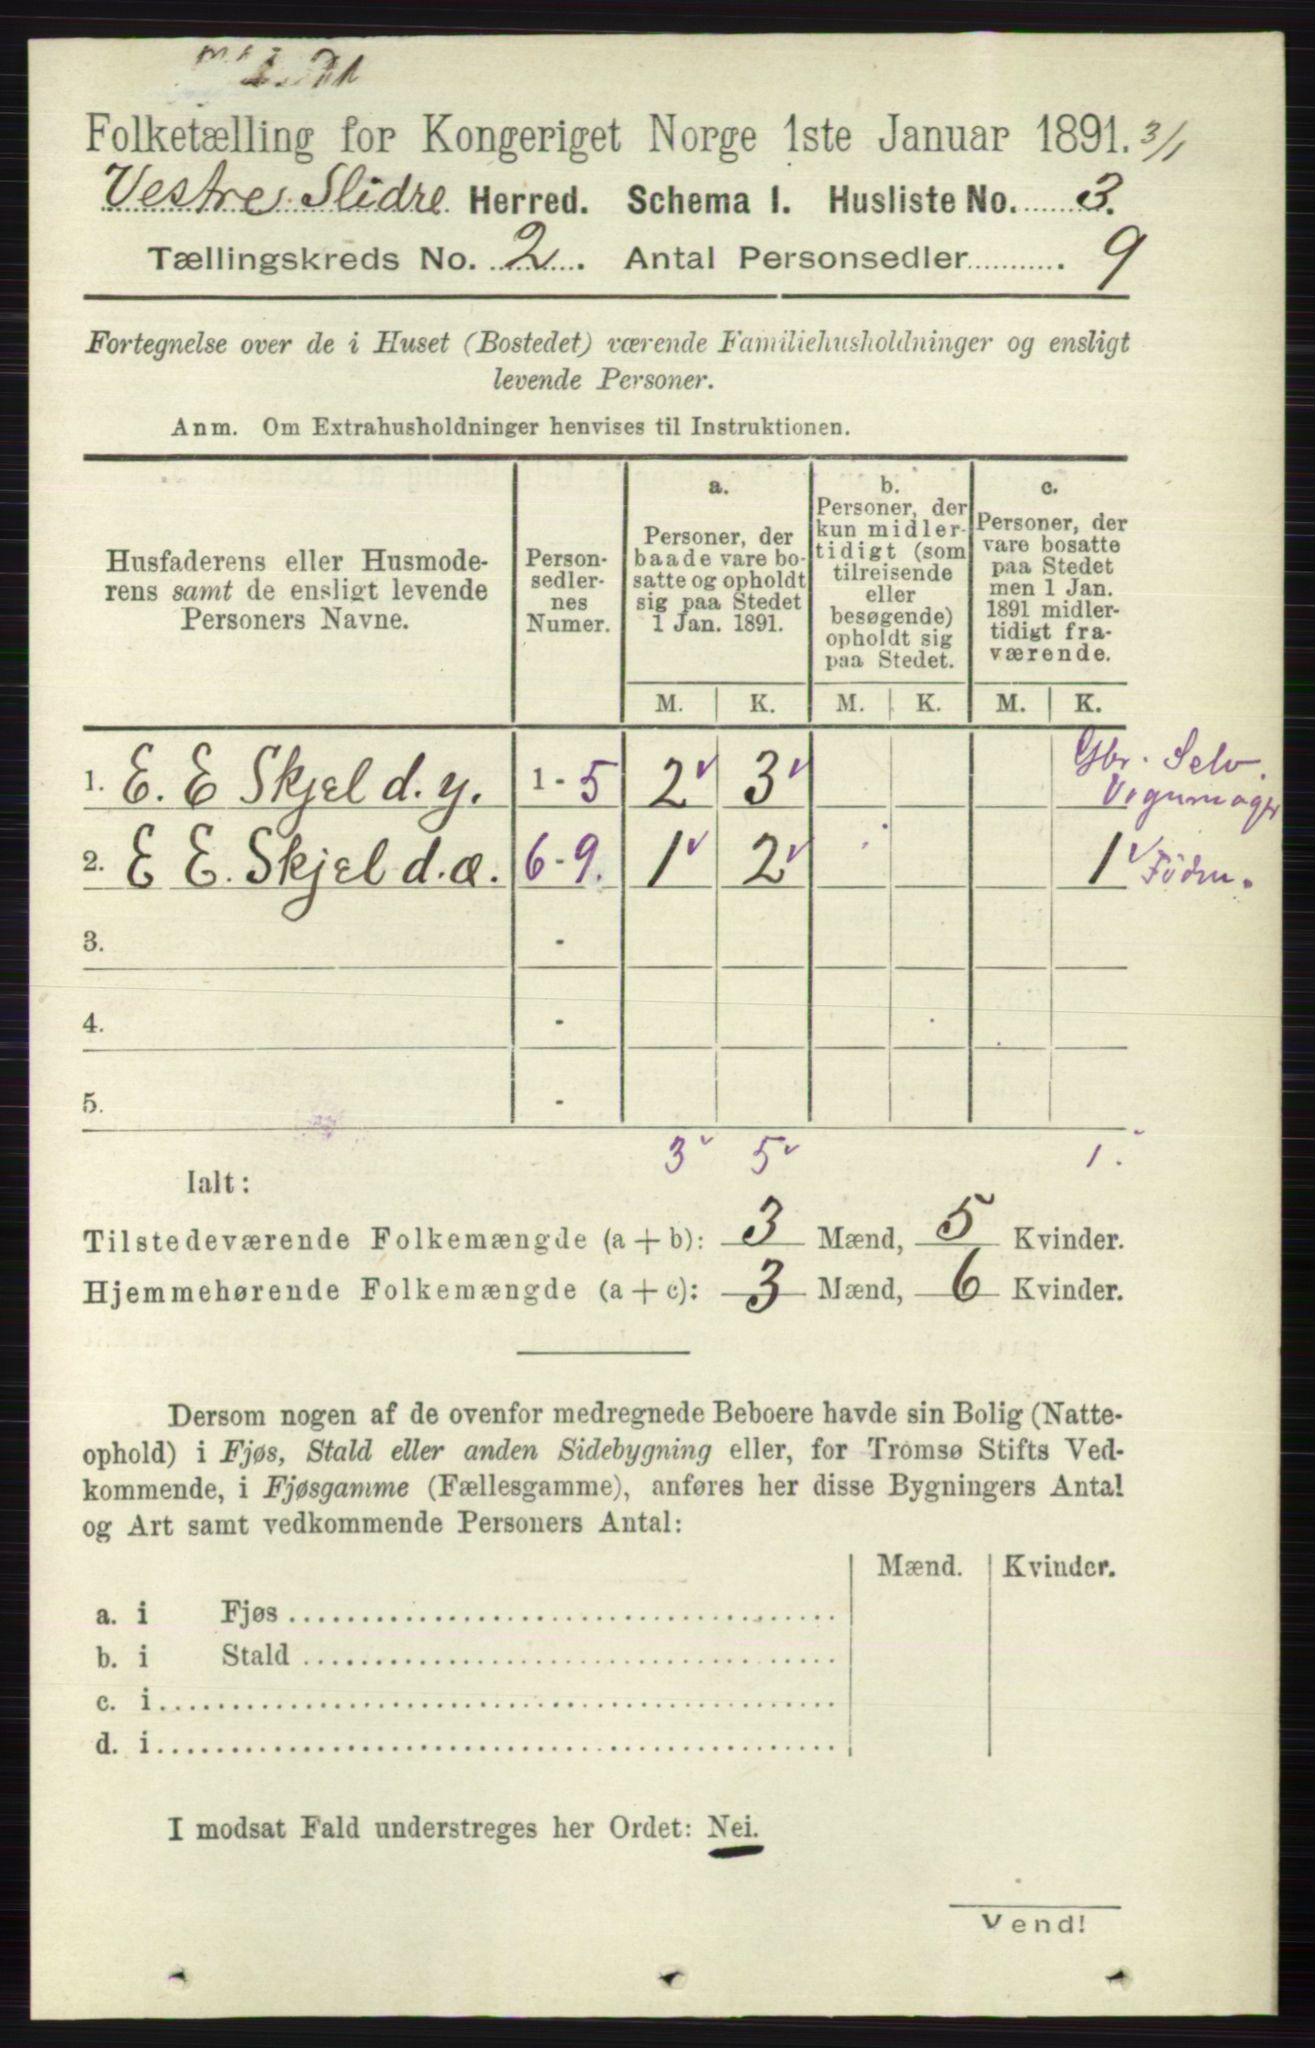 Folketælling for Kongeriget Norge 1ste Januar 1891. 3/1
Vestre Slidre Herred. Schema I. Husliste No. 3.
Tællingskreds No. 2. Antal Personsedler 9
Fortegnelse over de i Huset (Bostedet) værende Familiehusholdninger og ensligt
levende Personer.
Anm. Om Extrahusholdninger henvises til Instruktionen.
Husfaderens eller Husmode-
rens samt de ensligt levende
Personers Navne.
Person-
sedler-
nes
Numer.
a.
Personer, der
baade vare bo-
satte og opholdt
sig paa Stedet
1 Jan. 1891.
b.
Personer, der
kun midler-
tidigt (som
tilreisende
eller
besøgende)
opholdt sig
paa Stedet.
c.
Personer, der
vare bosatte
paa Stedet
men 1 Jan.
1891 midler-
tidigt fra-
værende.
M. K. M. K. M. K.
1. E. E Skjel d. y. 1 - 5 2 3 Gbr. Selv.
2. E E. Skjel d. æ. 6 - 9. 1 2 1
3. -
4. -
5. -
3 5 1.
Ialt:
Tilstedeværende Folkemængde (a + b): 3 Mænd, 5 Kvinder.
Hjemmehørende Folkemængde (a + c): 3 Mænd, 6 Kvinder.
Dersom nogen af de ovenfor medregnede Beboere havde sin Bolig (Natte-
ophold) i Fjøs, Stald eller anden Sidebygning eller, for Tromsø Stifts Ved-
kommende, i Fjøsgamme (Fællesgamme), anføres her disse Bygningers Antal
og Art samt vedkommende Personers Antal:
Mænd. Kvinder.
a. i Fjøs
b. i Stald
c. i
d. i
I modsat Fald understreges her Ordet: Nei.
Vend!